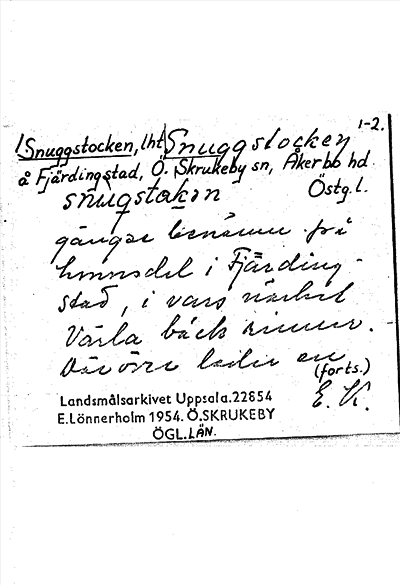 1-2.
1. Snuggstocken, lht Snuggstocken
å Fjärdingstad, Ö. Skrukeby sn, Åkerbo hd.
Östg.l.
snugstokən
gängse benämn. på
hemmsdel i Fjärding-
stad, i vars närhet
Värla bäck rinner.
Däröver leder en
(forts.)
E. K.
Landsmålsarkivet Uppsala.22854
E.Lönnerholm 1954. Ö.SKRUKEBY
ÖGL.LÄN.